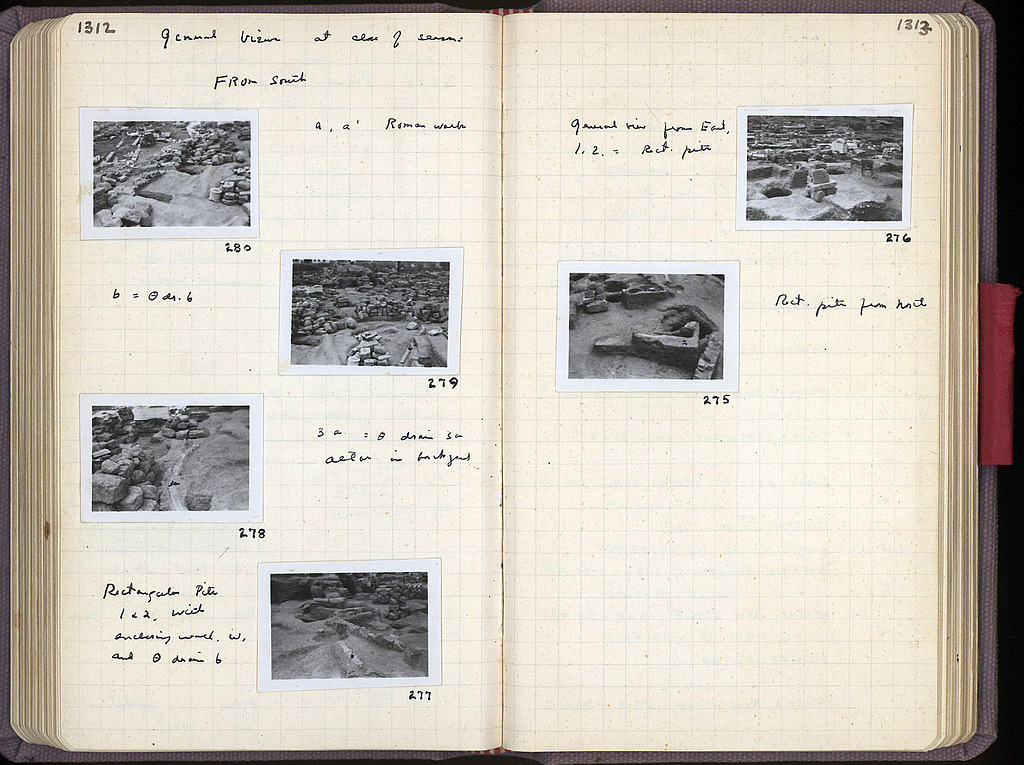 1312
General View at close of season:
FROM South
a, a' Roman walls
280
b = θ dr. b
279
3a = θ drain 3a
altar in backgrd
278
Rectangular Pits
1 & 2, with
enclosing wall, w,
and θ drain b
277
1313
General view from East,
1. 2. = Rect. pits
276
Rect. pits from North
275